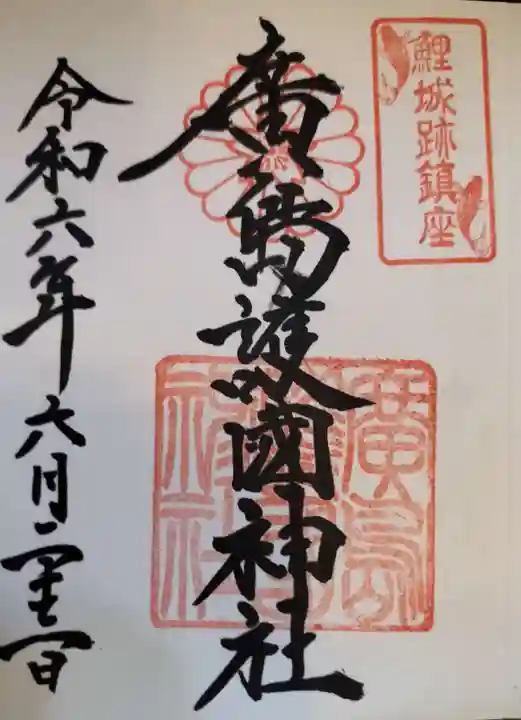 鯉城跡鎮座
廣島護國神社
廣島
護國
神社
令和六年六月